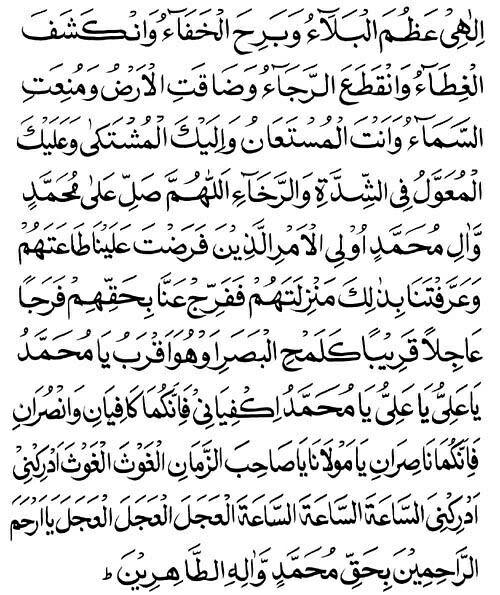 اِلٰهِیْ عَظُمَ الْبَلَآءُ وَبَرِحَ الْخَفَآءُ وَانْكَشَفَ
الْغِطَآءُ وَانْقَطَعَ الرَّجَآءُ وَضَاقَتِ الْاَرْضُ وَمُنِعَتِ
السَّمَآءُ وَاَنْتَ الْمُسْتَعَانُ وَاِلَيْكَ الْمُشْتَكٰی وَعَلَيْكَ
الْمُعَوَّلُ فِی الشِّدَّةِ وَالرَّخَآءِ اَللّٰهُمَّ صَلِّ عَلٰی مُحَمَّدٍ
وَّاٰلِ مُحَمَّدٍ اُولِی الْاَمْرِ الَّذِيْنَ فَرَضْتَ عَلَيْنَا طَاعَتَهُمْ
وَعَرَّفْتَنَا بِذٰلِكَ مَنْزِلَتَهُمْ فَفَرِّجْ عَنَّا بِحَقِّهِمْ فَرَجًا
عَاجِلًا قَرِيْبًا كَلَمْحِ الْبَصَرِ اَوْ هُوَ اَقْرَبُ يَا مُحَمَّدُ
يَا عَلِیُّ يَا عَلِیُّ يَا مُحَمَّدُ اِكْفِيَانِیْ فَاِنَّكُمَا كَافِيَانِ وَانْصُرَانِ
فَاِنَّكُمَا نَاصِرَانِ يَا مَوْلَانَا يَا صَاحِبَ الزَّمَانِ الْغَوْثَ الْغَوْثَ اَدْرِكْنِیْ
اَدْرِكْنِیْ السَّاعَةَ السَّاعَةَ السَّاعَةَ الْعَجَلَ الْعَجَلَ الْعَجَلَ يَا اَرْحَمَ
الرَّاحِمِيْنَ بِحَقِّ مُحَمَّدٍ وَّاٰلِهِ الطَّاهِرِيْنَ ؕ